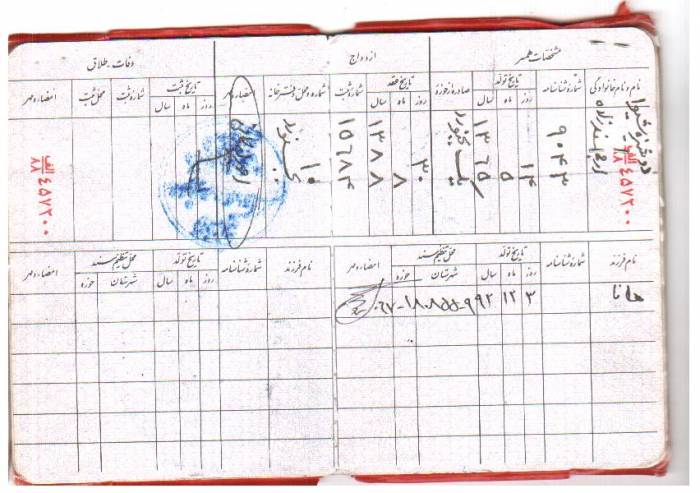 مشخصات همسر
ازدواج
وفات - طلاق
نام و نام خانوادگی
شماره شناسنامه
تاریخ تولد
روز ماه سال
صادره از حوزه
تاریخ عقد
روز ماه سال
شماره ثبت
شماره و محل دفترخانه
امضاء و مهر
تاریخ ثبت
روز ماه سال
شماره ثبت
محل ثبت
امضاء و مهر
۹۰۴۳
۱۴ ۵ ۱۳۶۵
یک بجنورد
۳۰ ۸ ۱۳۸۸
۱۵۶۸۴
۱۰ بجنورد
الف/۸۸ ۴۵۷۲۰۰
الف/۸۸ ۴۵۷۲۰۰
نام فرزند
شماره شناسنامه
تاریخ تولد
روز ماه سال
محل تنظیم سند
شهرستان حوزه
امضاء و مهر
نام فرزند
شماره شناسنامه
تاریخ تولد
روز ماه سال
محل تنظیم سند
شهرستان حوزه
امضاء و مهر
هانا
۳ ۱۲ ۹۲